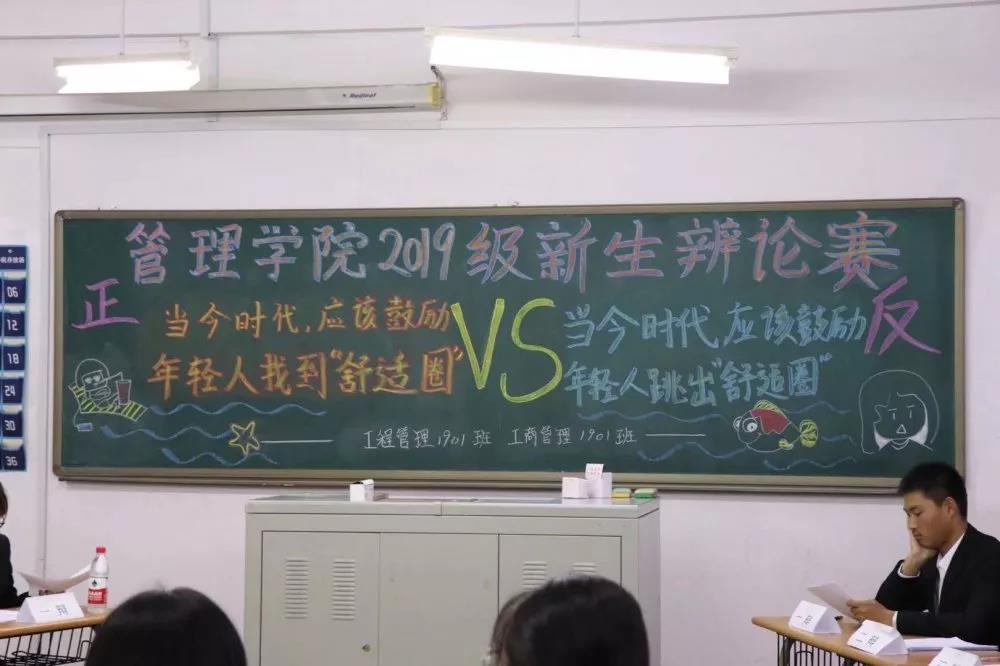 Redleaf
管理学院2019级新生辨论赛
正
当今时代,应该鼓励
年轻人找到"舒适圈"
VS
当今时代,应该鼓励
年轻人跳出"舒适圈"
反
工程管理1901班 工商管理1901班
06
12
18
24
30
36
一辩